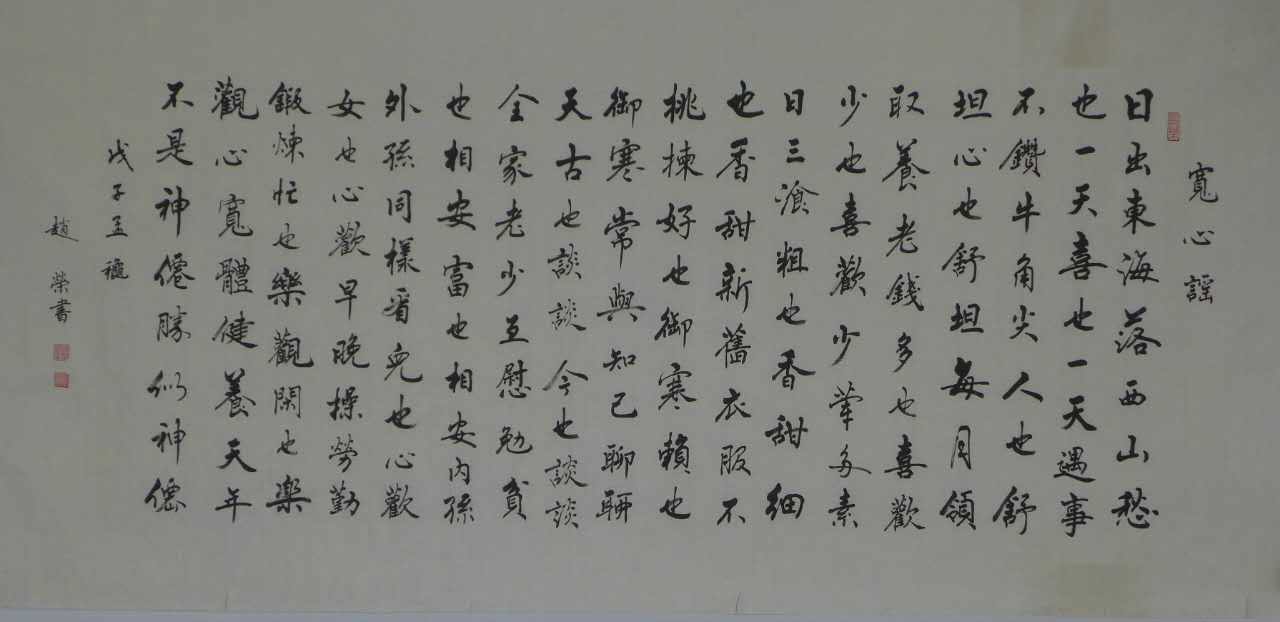 寬心謠
日出東海落西山愁
也一天喜也一天遇事
不鑽牛角尖人也舒
坦心也舒坦每月領
取養老錢多也喜歡
少也喜歡少葷多素
日三湌粗也香甜細
也香甜新舊衣服不
挑揀好也御寒賴也
御寒常與知己聊聊
天古也談談今也談談
全家老少互慰勉貧
也相安富也相安內孫
外孫同樣看兒也心歡
女也心歡早晚操勞勤
鍛煉忙也樂觀閑也樂
觀心寬體健養天年
不是神僊勝似神僊
戊子孟穐
趙榮書